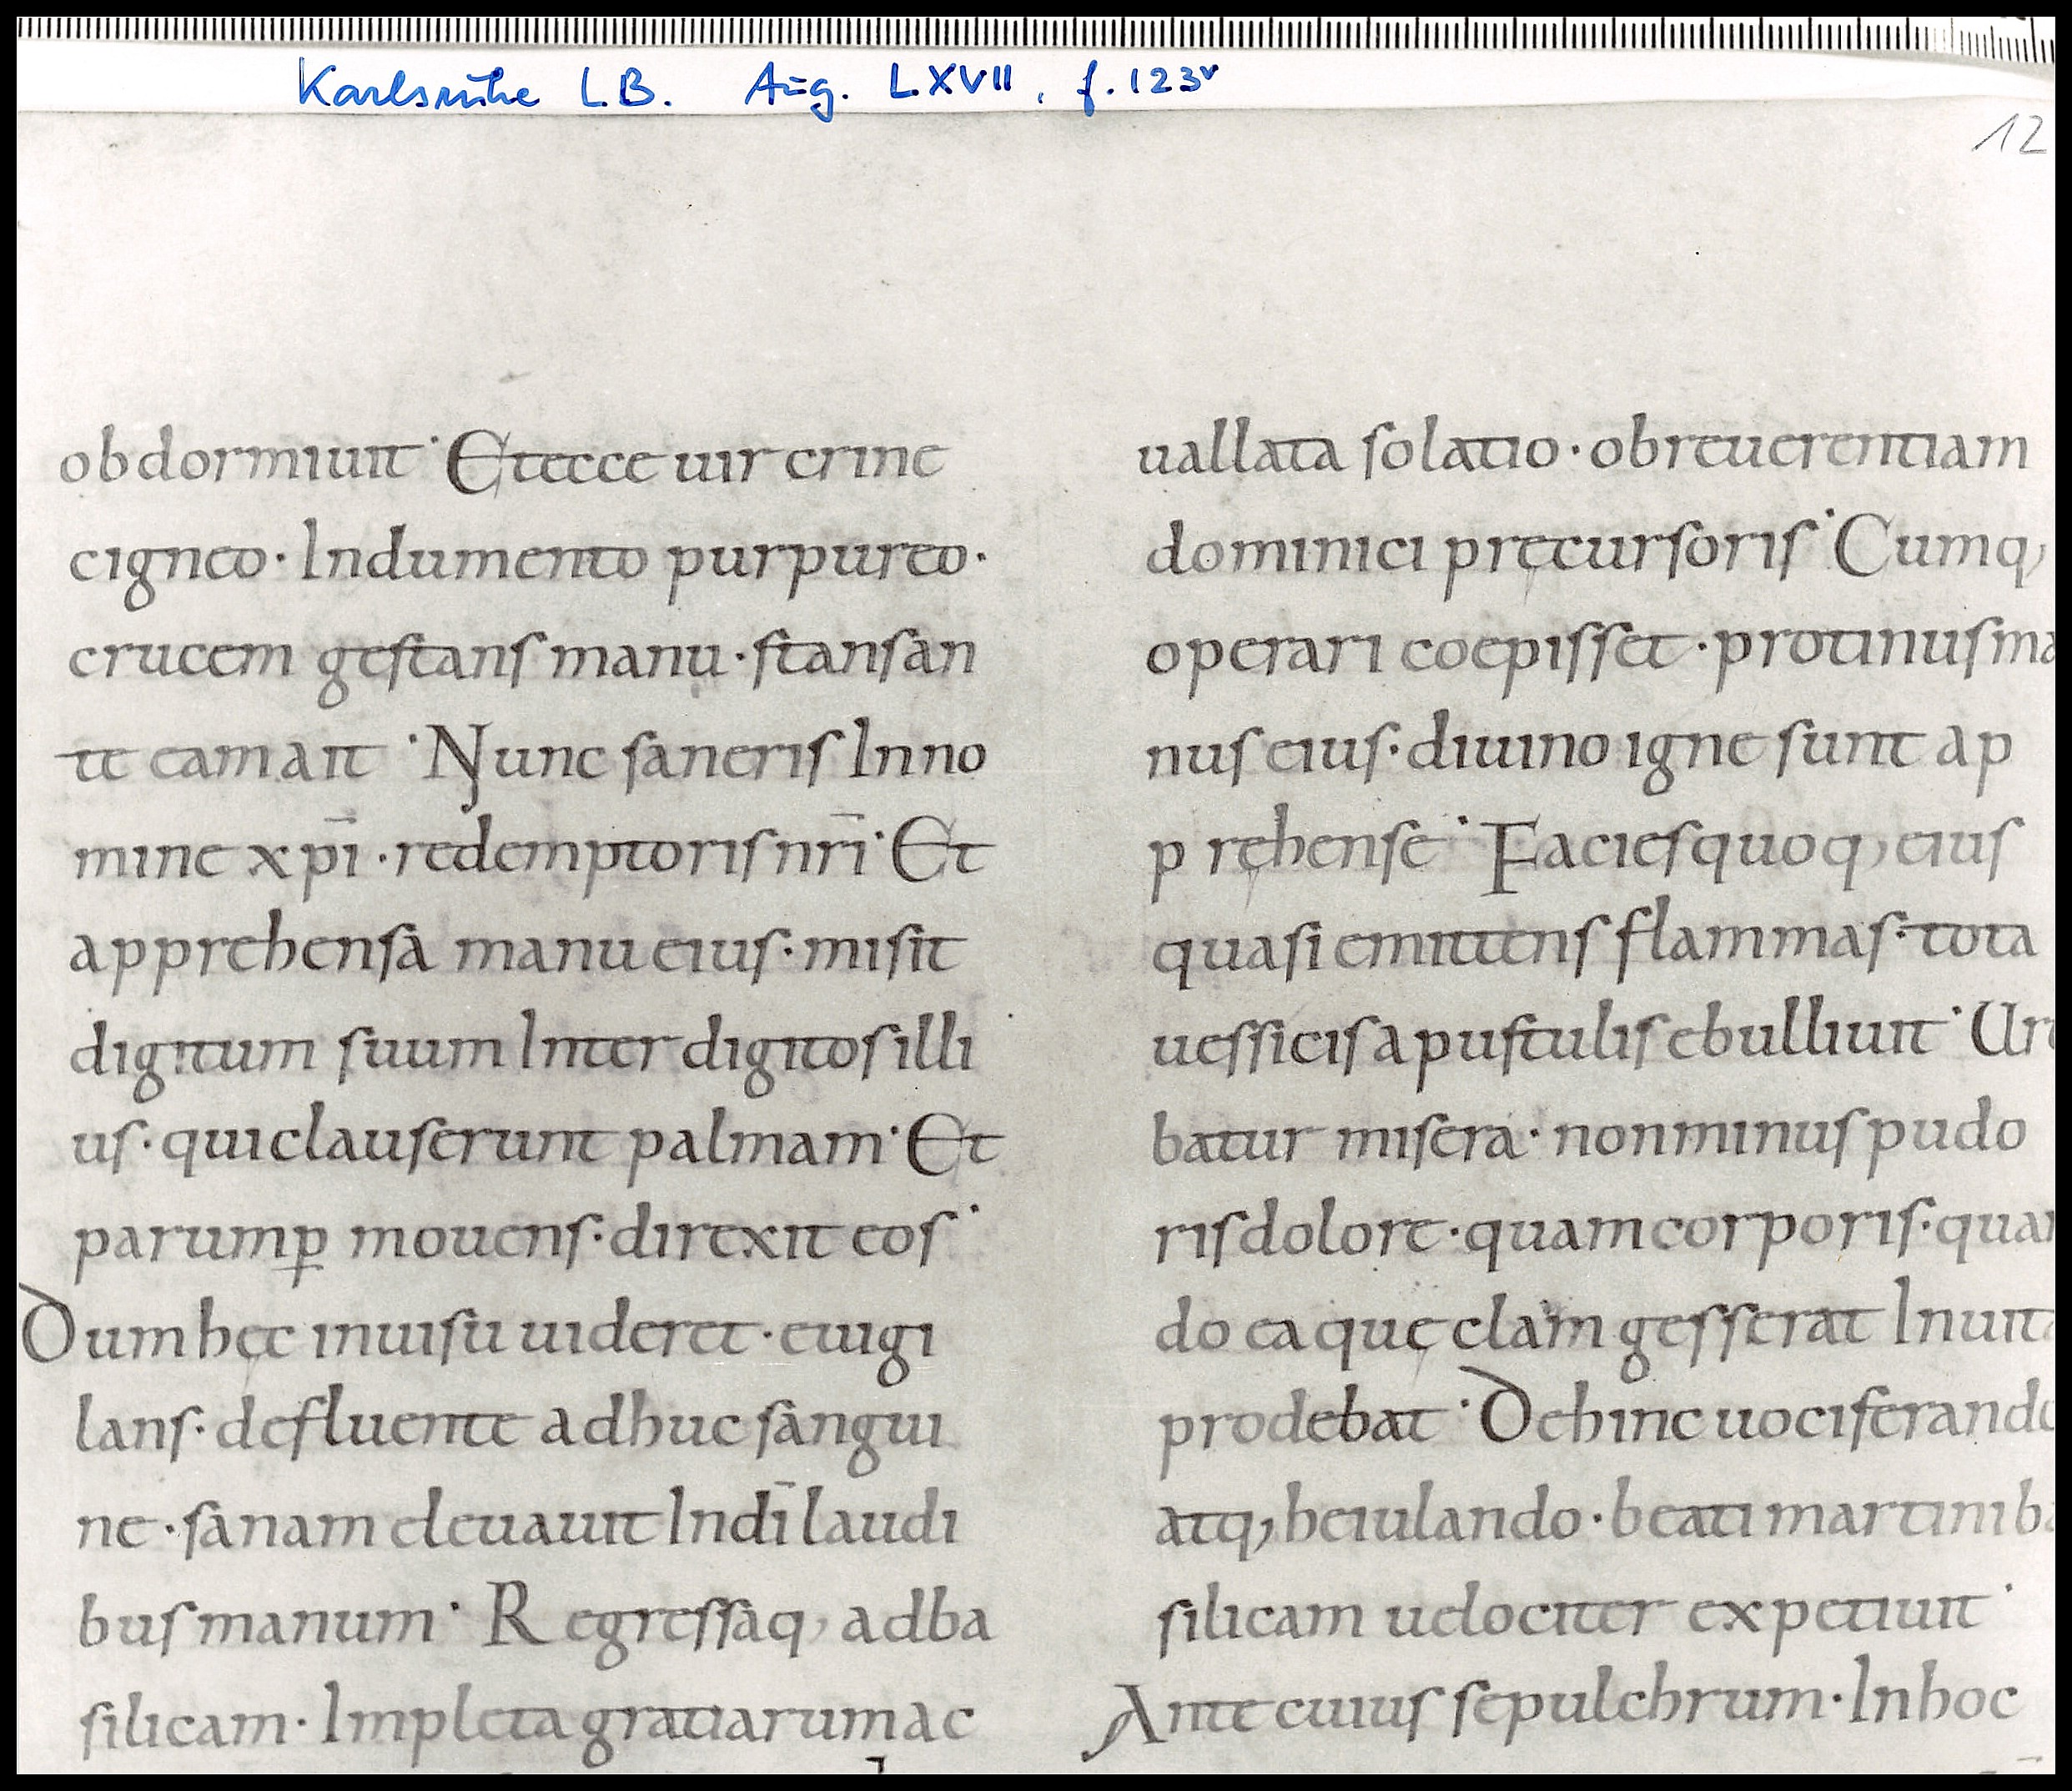 Karlsruhe L.B. Aug. LXVII, f. 123v
12
obdormiuit· Et ecce uir crine
cigneo· Indumento purpureo·
crucem gestans manu· stans an
te eam ait· Nunc saneris In no
mine xp̄i· redemptoris nr̄i· Et
apprehensa manu eius· misit
digitum suum Inter digitos illi
us· qui clauserunt palmam· Et
parump̲ mouens· direxit eos·
Dum hęc in uisu uideret· euigi
lans· defluente adhuc sangui
ne· sanam eleuauit In dī laudi
bus manum· Regressaq, ad ba
silicam· Impleta gratiarum ac
uallata solatio· ob reuerentiam
dominici pręcursoris· Cumq,
operari coepisset· protinus ma
nus eius· diuino igne sunt ap
pręhense· Facies quoq, eius
quasi emittens flammas· tota
uessicis a pustulis ebulliuit· Ure
batur misera· non minus pudo
ris dolore· quam corporis· quan
do ea quę clam gesserat Inuita
prodebat· Dehinc uociferando
atq, heiulando· beati martini ba
silicam uelociter expetiuit·
Ante cuius sepulchrum· In hoc